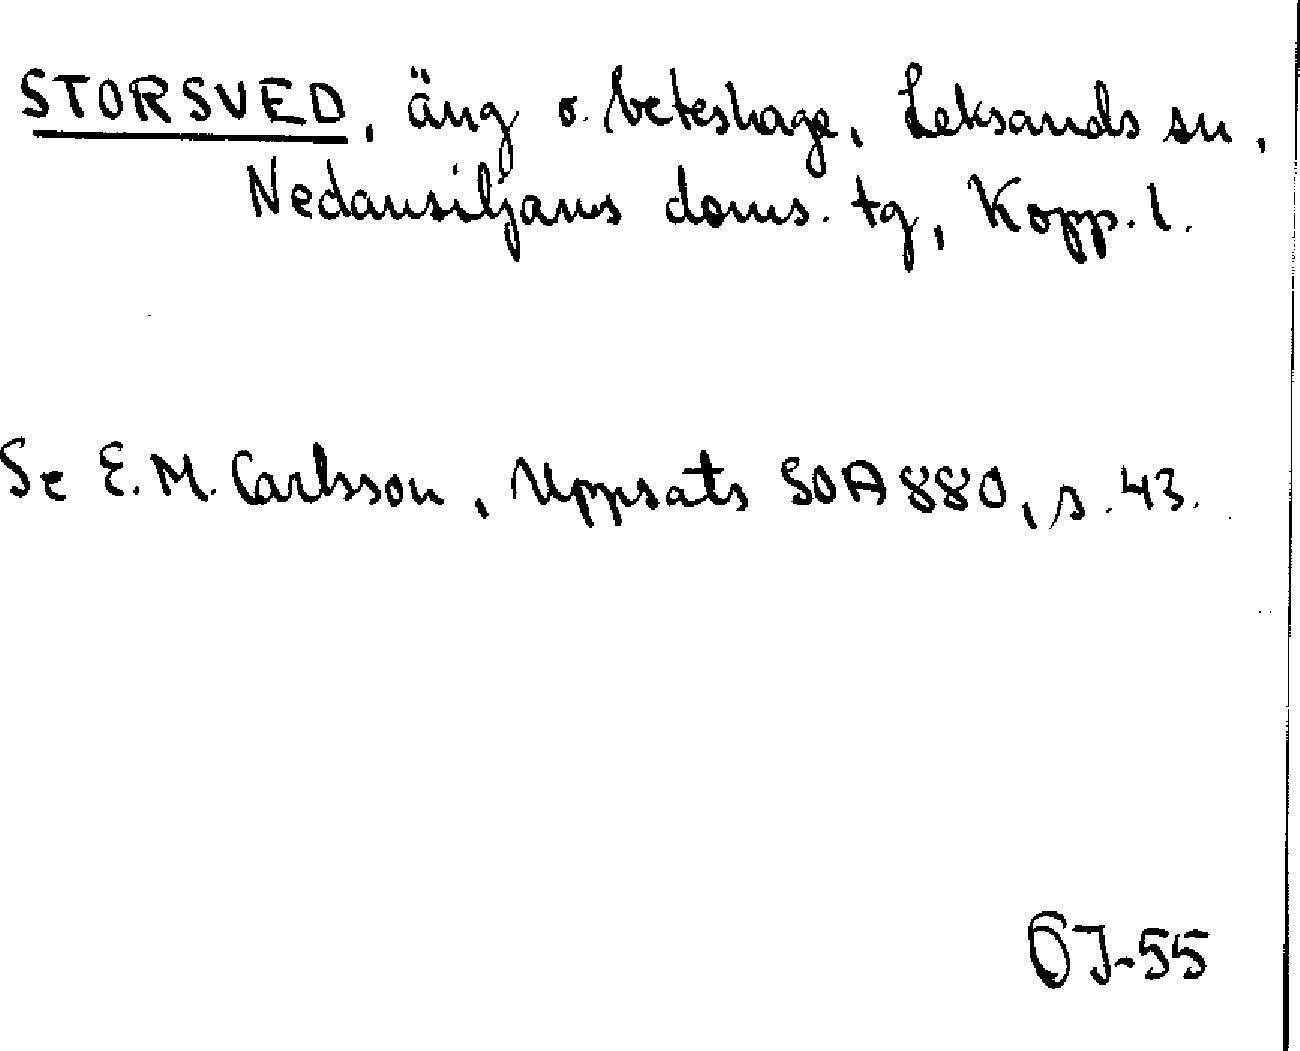 STORSVED, äng o. beteshage, Leksands sn,
Nedansiljans doms. tg, Kopp. l.
Se E. M. Carlsson, Uppsats SOA 880, s. 43.
ÖJ-55